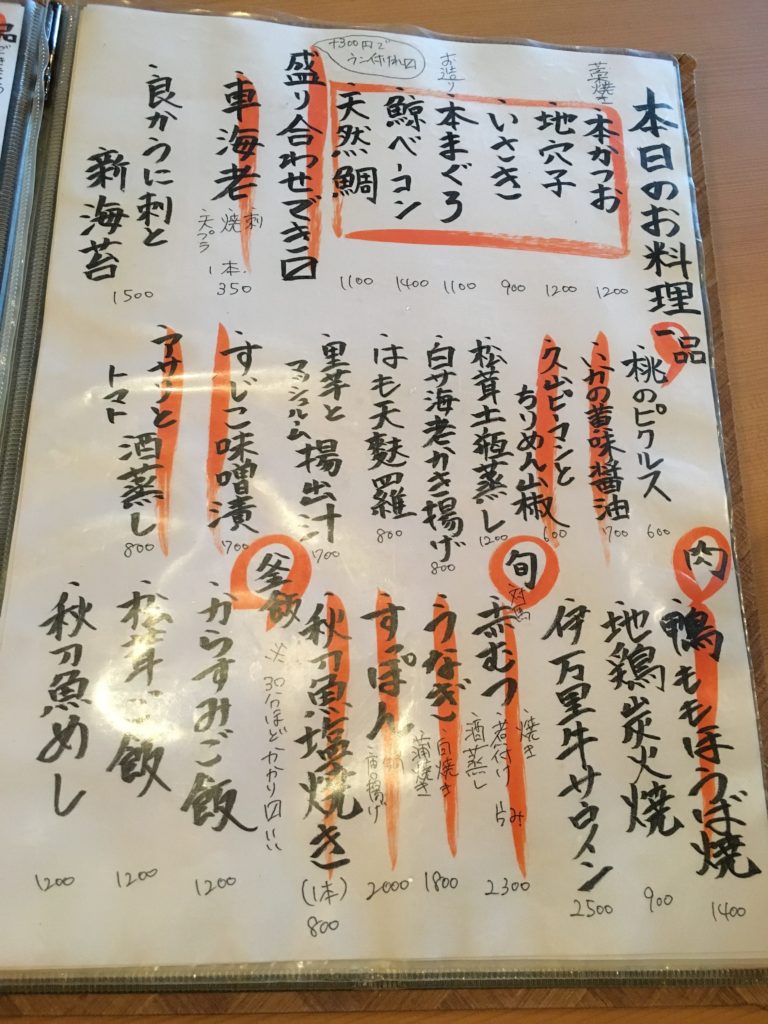 本日のお料理
藁焼き
・本かつお
1200
・地穴子
1200
・いさき
900
お造り
・本まぐろ
1100
・鯨ベーコン
1400
・天然鯛
1100
+300円で
盛り合わせできます〼
・車海老
刺
焼
天プラ
1本
350
・良かうに刺と
新海苔
1500
一品
・桃のピクルス
600
・いかの黄味醤油
700
・久山ピーマンと
ちりめん山椒
600
・松茸土瓶蒸し
1200
・白サ海老かき揚げ
800
・はも天麩羅
800
・里芋と
マッシュルーム
揚出汁
700
・すじこ味噌漬
700
・アサリと
トマト
酒蒸し
800
肉
・鴨ももほうば焼
1400
・地鶏炭火焼
900
・伊万里牛サロイン
2500
旬
対馬
・赤むつ
焼き
煮付け
酒蒸し
2300
・うなぎ
白焼き
蒲焼き
1800
・すっぽん
2000
・秋刀魚塩焼き
(1本)
800
釜飯
※30分ほどかかり〼
・からすみご飯
1200
・松茸ご飯
1200
・秋刀魚めし
1200